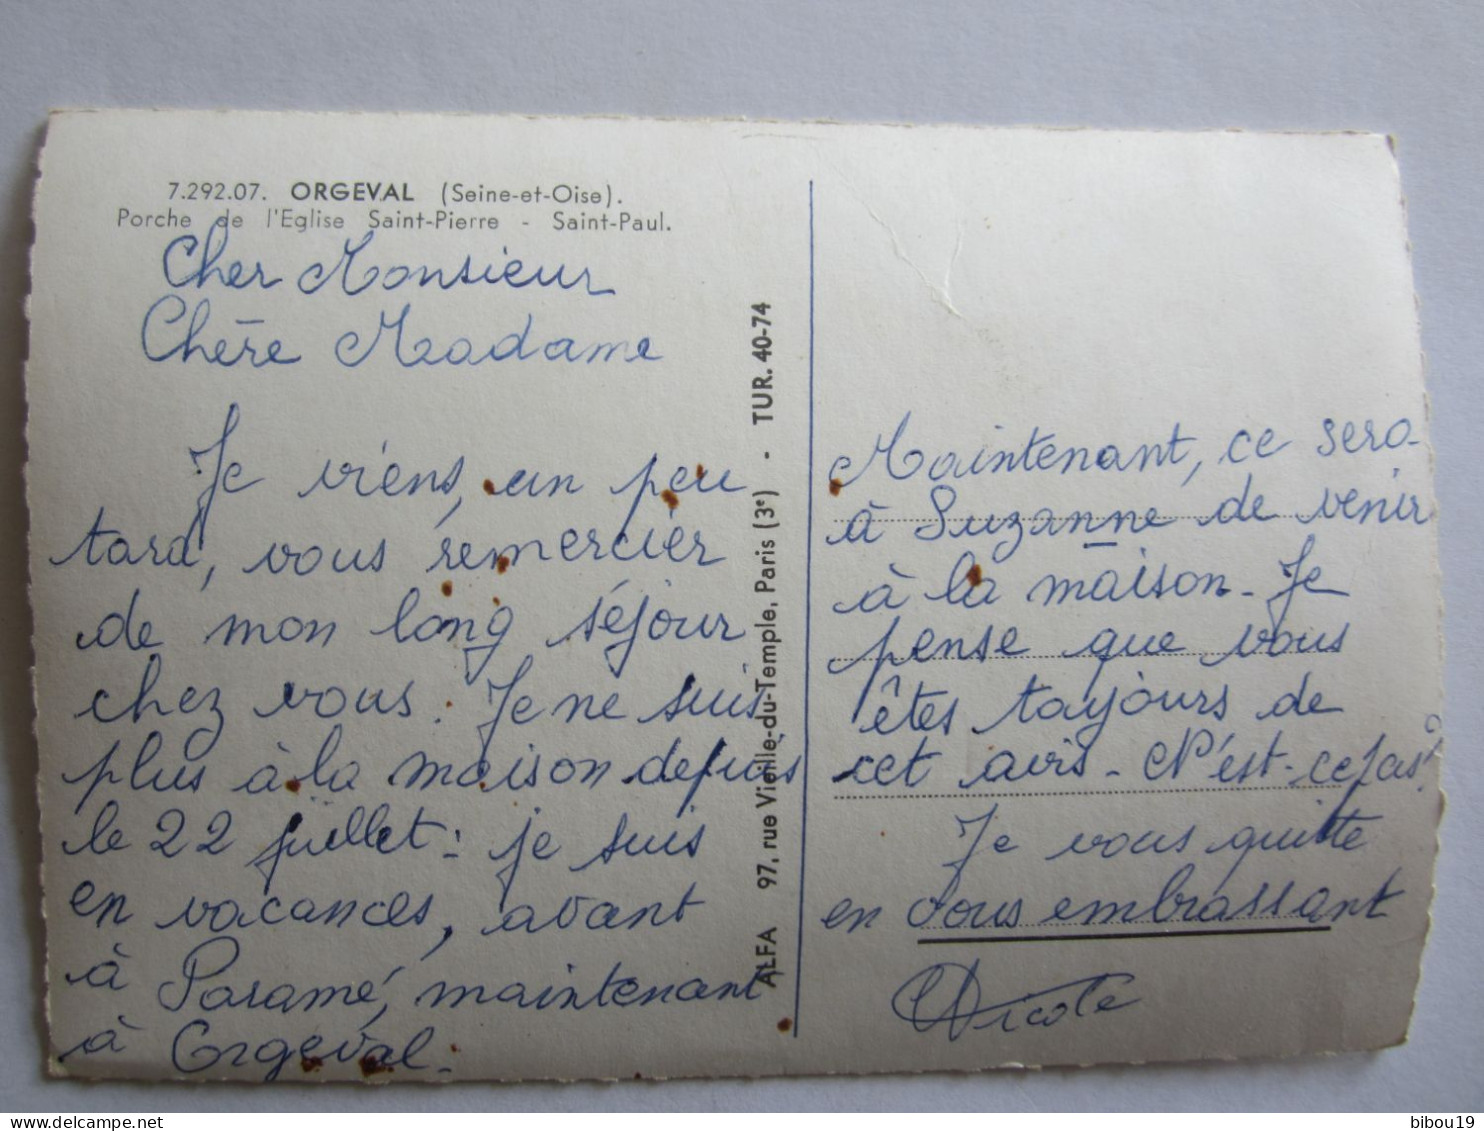 7.292.07. ORGEVAL (Seine-et-Oise).
Porche de l'Eglise Saint-Pierre - Saint-Paul.
Cher Monsieur
Chère Madame
Je viens, un peu
tard, vous remercier
de mon long séjour
chez vous. Je ne suis
plus à la maison depuis
le 22 juillet : je suis
en vacances, avant
à Paramé, maintenant
à Orgeval.
ALFA 97, rue Vieille-du-Temple, Paris (3e) - TUR. 40-74
Maintenant, ce sera
à Suzanne de venir
à la maison. Je
pense que vous
êtes toujours de
cet avis. N'est-ce pas?
Je vous quitte
en vous embrassant
Nicole
bibou19